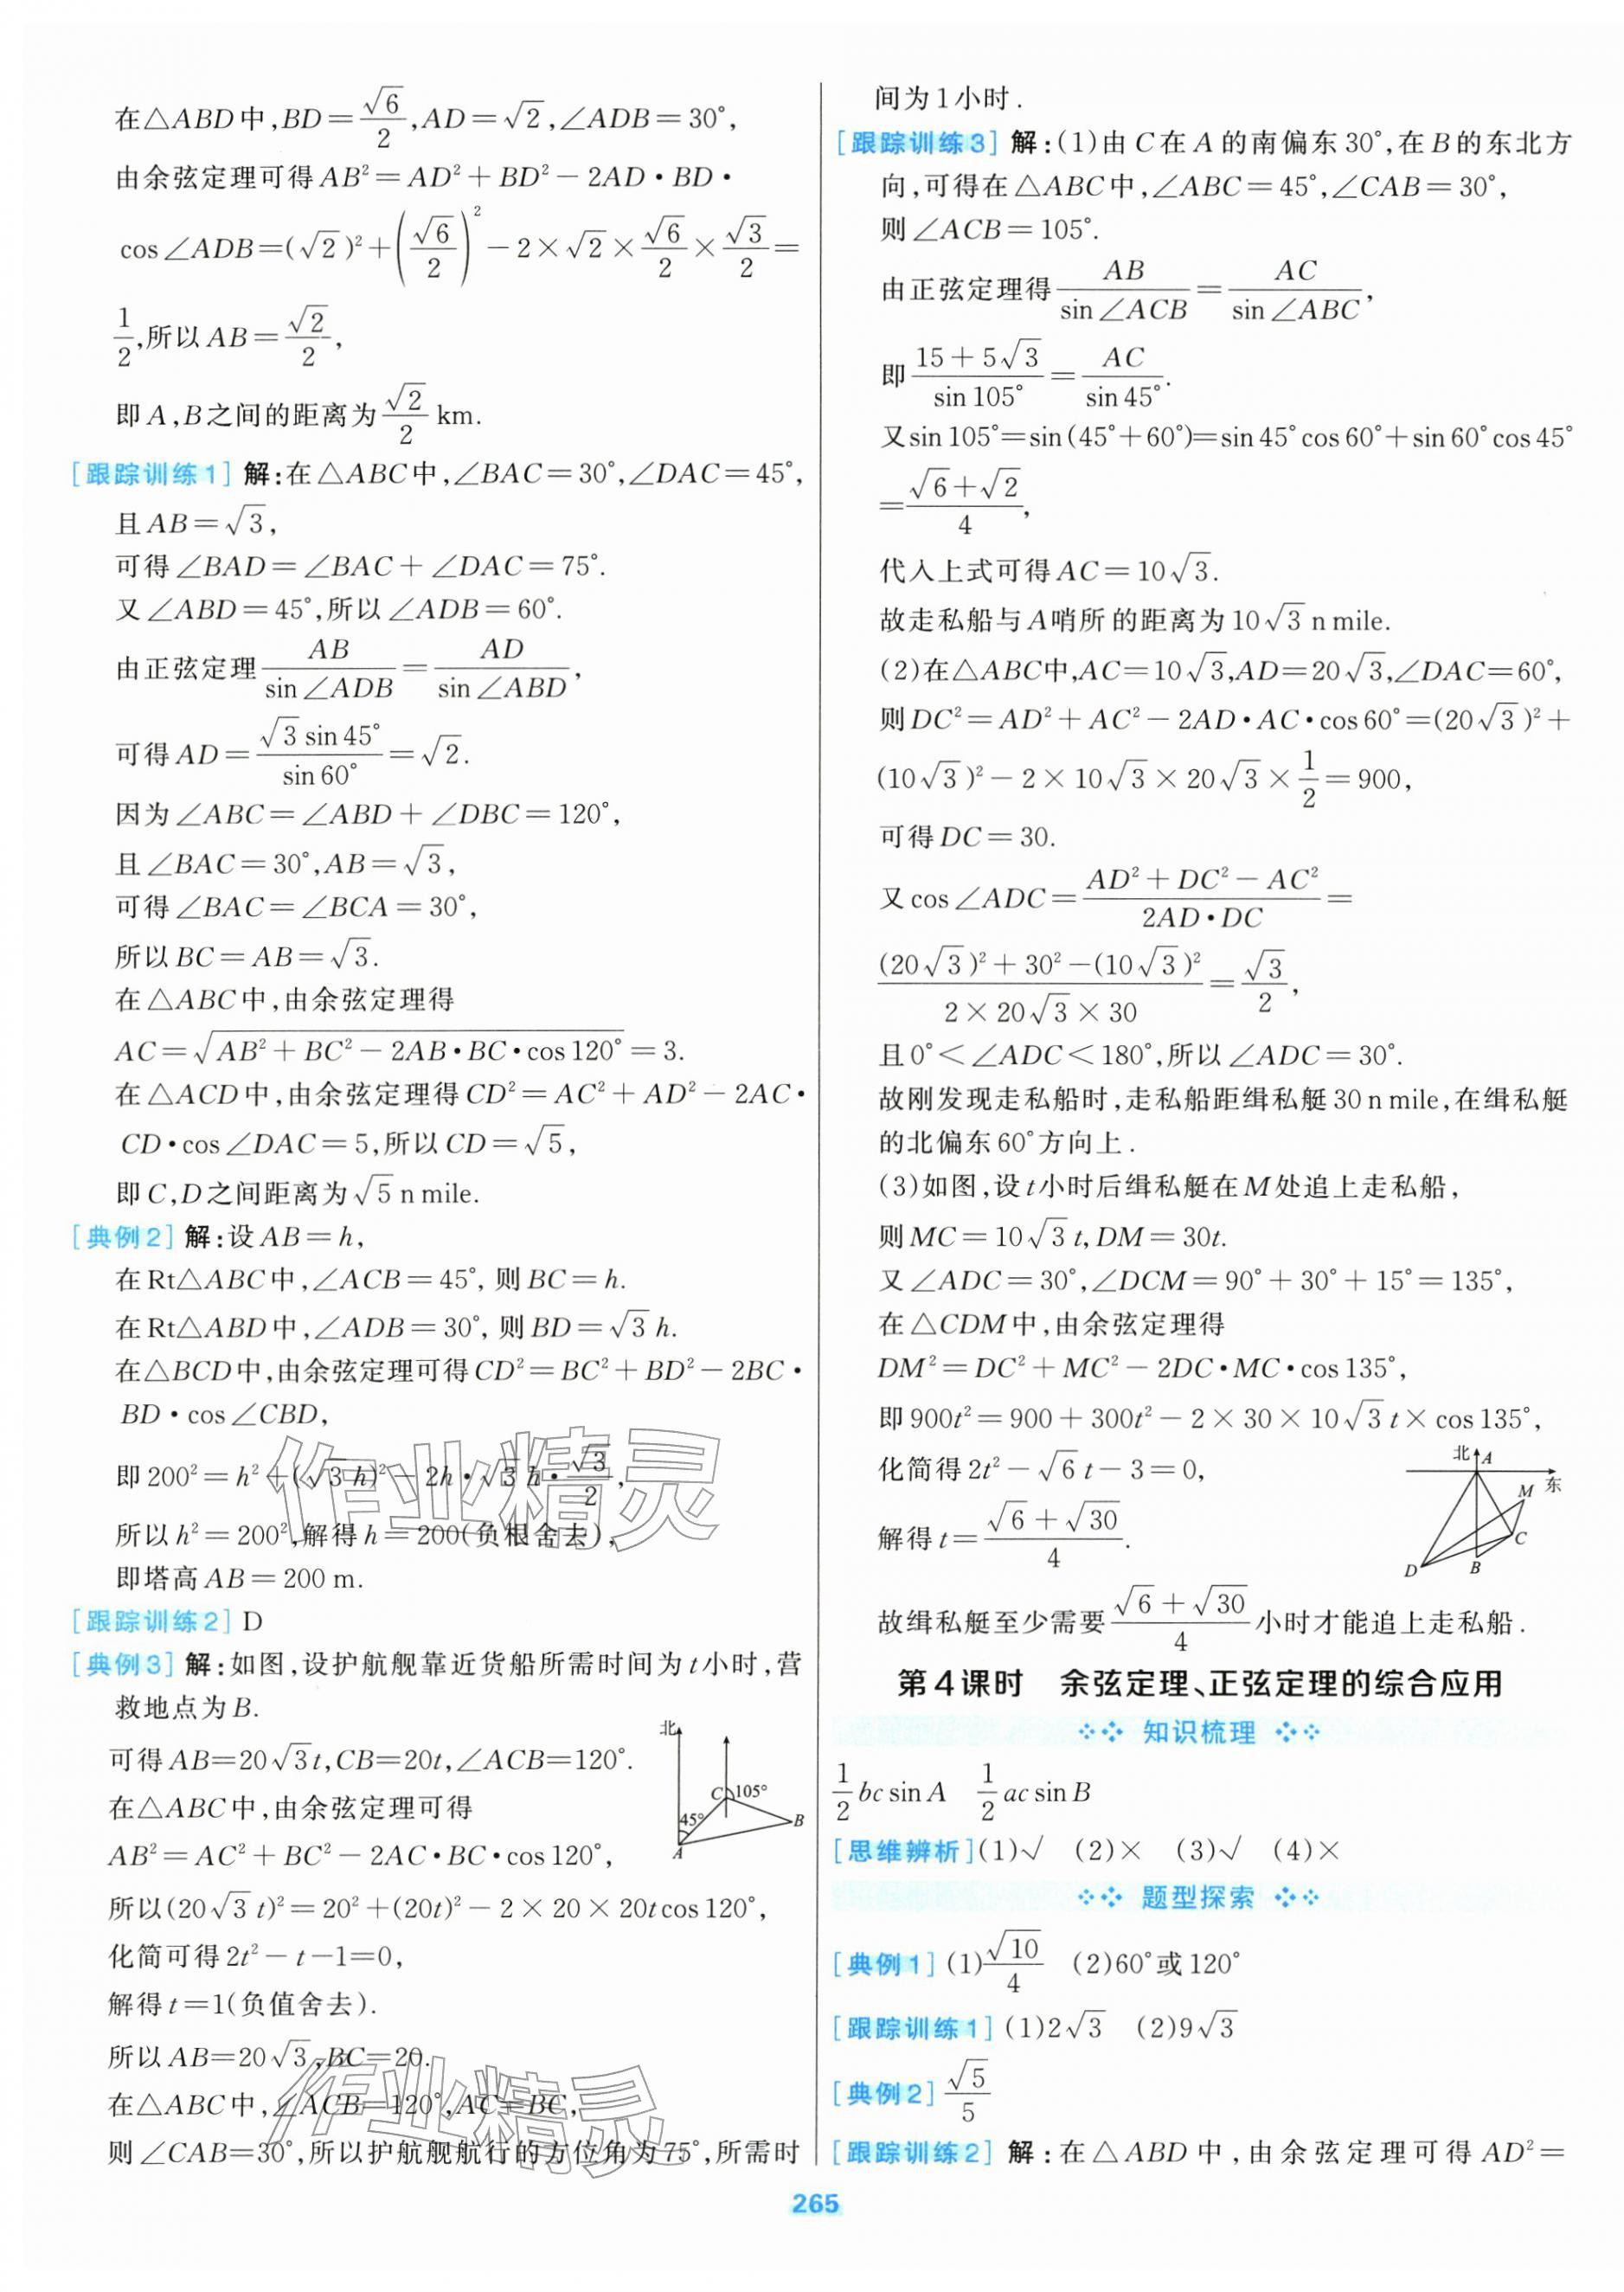 在△ABD中,BD=√6/2,AD=√2,∠ADB=30°,
由余弦定理可得AB²=AD²+BD²-2AD·BD·
cos∠ADB=(√2)²+(√6/2)²-2×√2×√6/2×√3/2=
1/2,所以AB=√2/2,
即A,B之间的距离为√2/2 km.
[跟踪训练1] 解:在△ABC中,∠BAC=30°,∠DAC=45°,
且AB=√3,
可得∠BAD=∠BAC+∠DAC=75°.
又∠ABD=45°,所以∠ADB=60°.
由正弦定理AB/sin∠ADB=AD/sin∠ABD,
可得AD=√3sin45°/sin60°=√2.
因为∠ABC=∠ABD+∠DBC=120°,
且∠BAC=30°,AB=√3,
可得∠BAC=∠BCA=30°,
所以BC=AB=√3.
在△ABC中,由余弦定理得
AC=√(AB²+BC²-2AB·BC·cos120°)=3.
在△ACD中,由余弦定理得CD²=AC²+AD²-2AC·
CD·cos∠DAC=5,所以CD=√5,
即C,D之间距离为√5 n mile.
[典例2] 解:设AB=h,
在Rt△ABC中,∠ACB=45°,则BC=h.
在Rt△ABD中,∠ADB=30°,则BD=√3h.
在△BCD中,由余弦定理可得CD²=BC²+BD²-2BC·
BD·cos∠CBD,
即200²=h²+(√3h)²-2h·√3h·√3/2,
所以h²=200²,解得h=200(负根舍去),
即塔高AB=200 m.
[跟踪训练2] D
[典例3] 解:如图,设护航舰靠近货船所需时间为t小时,营
救地点为B.
可得AB=20√3t,CB=20t,∠ACB=120°.
在△ABC中,由余弦定理可得
AB²=AC²+BC²-2AC·BC·cos120°,
北
C
105°
45°
B
A
所以(20√3t)²=20²+(20t)²-2×20×20tcos120°,
化简可得2t²-t-1=0,
解得t=1(负值舍去).
所以AB=20√3,BC=20.
在△ABC中,∠ACB=120°,AC=BC,
则∠CAB=30°,所以护航舰航行的方位角为75°,所需时
间为1小时.
[跟踪训练3] 解:(1)由C在A的南偏东30°,在B的东北方
向,可得在△ABC中,∠ABC=45°,∠CAB=30°,
则∠ACB=105°.
由正弦定理得AB/sin∠ACB=AC/sin∠ABC,
即(15+5√3)/sin105°=AC/sin45°.
又sin105°=sin(45°+60°)=sin45°cos60°+sin60°cos45°
=(√6+√2)/4,
代入上式可得AC=10√3.
故走私船与A哨所的距离为10√3 n mile.
(2)在△ABC中,AC=10√3,AD=20√3,∠DAC=60°,
则DC²=AD²+AC²-2AD·AC·cos60°=(20√3)²+
(10√3)²-2×10√3×20√3×1/2=900,
可得DC=30.
又cos∠ADC=(AD²+DC²-AC²)/(2AD·DC)=
((20√3)²+30²-(10√3)²)/(2×20√3×30)=√3/2,
且0°<∠ADC<180°,所以∠ADC=30°.
故刚发现走私船时,走私船距缉私艇30 n mile,在缉私艇
的北偏东60°方向上.
(3)如图,设t小时后缉私艇在M处追上走私船,
则MC=10√3t,DM=30t.
又∠ADC=30°,∠DCM=90°+30°+15°=135°,
在△CDM中,由余弦定理得
DM²=DC²+MC²-2DC·MC·cos135°,
即900t²=900+300t²-2×30×10√3t×cos135°,
化简得2t²-√6t-3=0,
解得t=(√6+√30)/4.
北
A
东
M
C
D
B
故缉私艇至少需要(√6+√30)/4小时才能追上走私船.
第4课时 余弦定理、正弦定理的综合应用
知识梳理
1/2bcsinA 1/2acsinB
[思维辨析](1)√ (2)× (3)√ (4)×
题型探索
[典例1] (1)√10/4 (2)60°或120°
[跟踪训练1] (1)2√3 (2)9√3
[典例2] √5/5
[跟踪训练2] 解:在△ABD中,由余弦定理可得AD²=
265
作业精灵
作业精灵